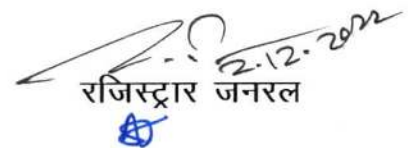 2.12.2022
रजिस्ट्रार जनरल